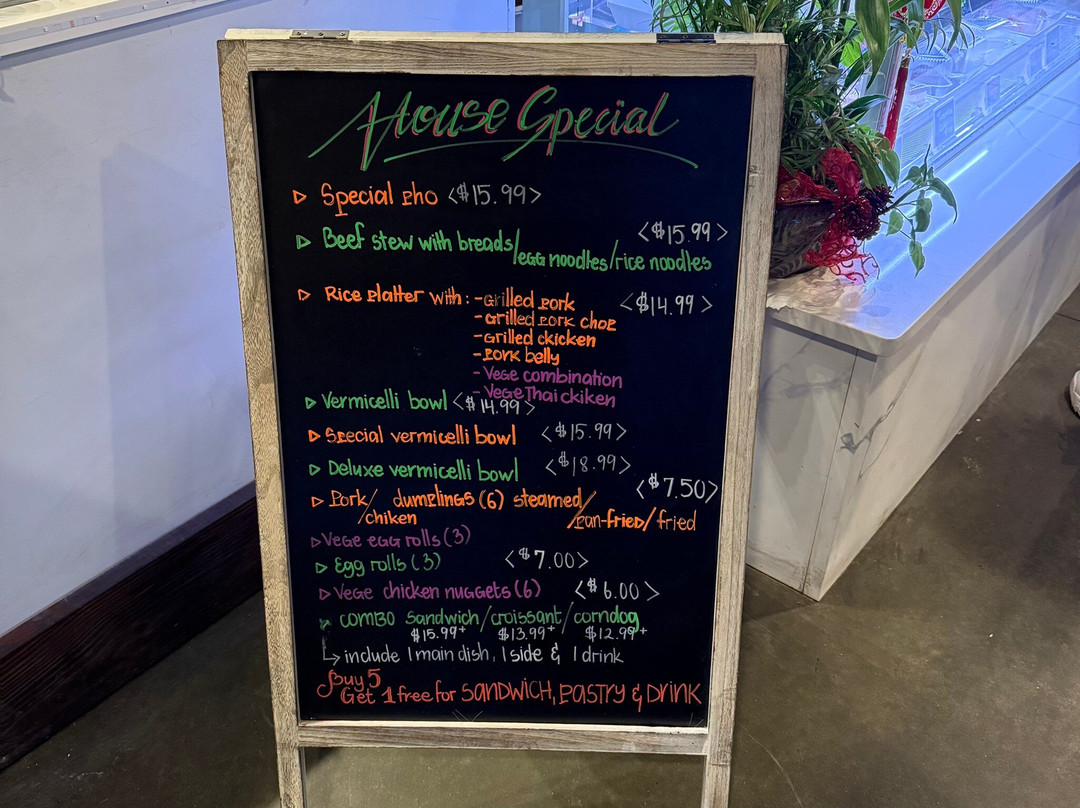 House Special
▷ Special pho <$15.99>
<$15.99>
▷ Beef stew with breads/egg noodles/rice noodles
▷ Rice platter with: - Grilled pork <$14.99>
- Grilled pork chop
- Grilled chicken
- Pork belly
- Vege combination
- Vege Thai ckiken
▷ Vermicelli bowl <$14.99>
▷ Special vermicelli bowl <$15.99>
▷ Deluxe vermicelli bowl <$18.99>
<$7.50>
▷ Pork/chiken dumplings (6) steamed/pan-fried/fried
▷ Vege egg rolls (3)
▷ Egg rolls (3) <$7.00>
▷ Vege chicken nuggets (6) <$6.00>
▷ combo sandwich/croissant/corndog
$15.99+ $13.99+ $12.99+
↳ include 1 main dish, 1 side & 1 drink
Buy 5
Get 1 free for SANDWICH, PASTRY & DRINK